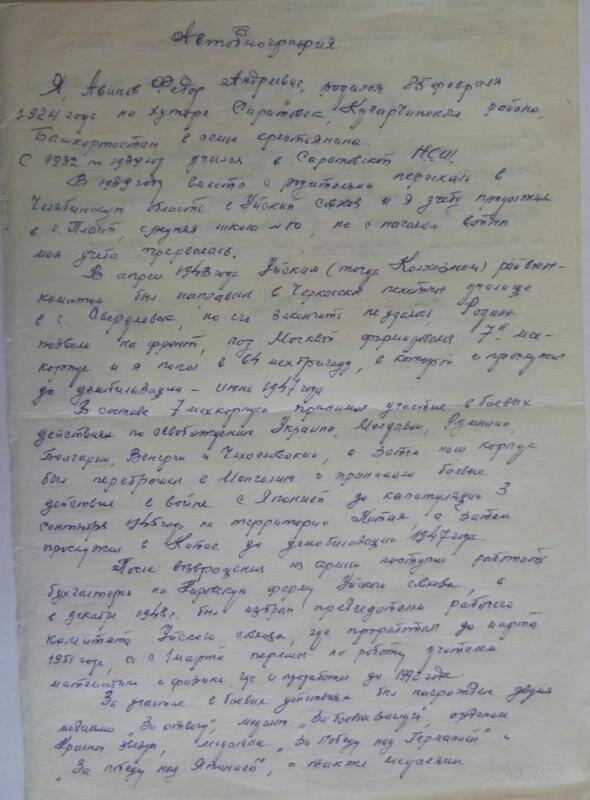 Автобиография
Я, Авинов Федор Андреевич, родился 25 февраля
1924 года на хуторе Саратовск, Кугарчинская района,
Башкортостан в семье крестьянина.
С 1932 по 1939 год учился в Саратовской НСШ.
В 1939 году вместе с родителями переехал в
Челябинскую область в Уйский совхоз и я учебу продолжил
в г. Пласт, средняя школа №10, но с началом войны
моя учеба прервалась.
В апреле 1943 году Уйским (тогда Колхозном) райвоен-
коматом был направлен в Черкасское пехотное училище
в г. Свердловск, но его закончить не удалось, Родина
позвала на фронт, под Москвой формировался 7й мех-
корпус и я попал в 64 мехбригаду, в которой и прослужил
до демобилизации – июнь 1947 года
В составе 7 мехкорпуса принимал участие в боевых
действиях по освобождению Украины, Молдавии, Румынии,
Болгарии, Венгрии и Чехословакии, а затем наш корпус
был переброшен в Монголию и принимал боевые
действия в войне с Японией до капитуляции 3
сентября 1945 году на территории Китая, а затем
прослужил в Китае до демобилизации 1947 года.
После возвращения из армии поступил работать
бухгалтером на Кировскую ферму Уйского совхоза, а
в декабре 1948 г. был избран председателем рабочего
комитета Уйского совхоза, где проработал до марта
1951 года, а с 1 марта перешел на работу учителем
математики и физики где и проработал до 1992 года.
За участие в боевых действиях был награжден двумя
медалями „За отвагу", медаль „За боевые заслуги", орденом
Красной Звезды, медалями „За Победу над Германией" и
„За победу над Японией", а также медалями